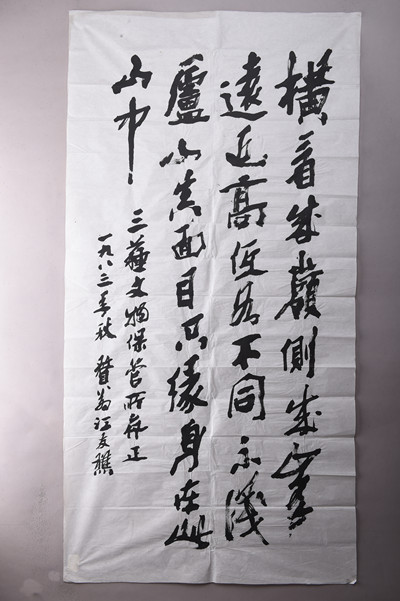 橫看成嶺側成峯
遠近高低各不同不識
廬山真面目只緣身在此
山中
三蘇文物保管所存正
一九八三年秋 贅翁江友樵